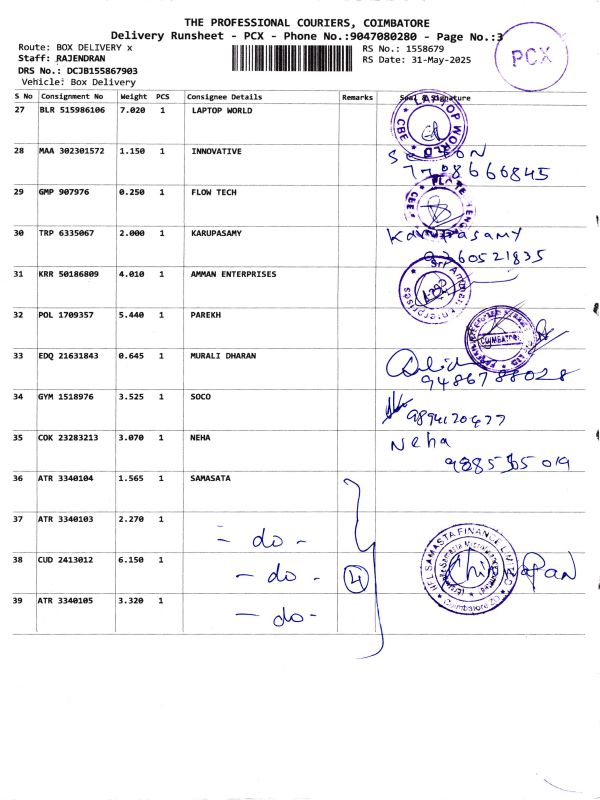 THE PROFESSIONAL COURIERS, COIMBATORE
Delivery Runsheet - PCX - Phone No.:9047080280 - Page No.:3
PCX
Route: BOX DELIVERY x
RS No.: 1558679
Staff: RAJENDRAN
RS Date: 31-May-2025
DRS No.: DCJB155867903
Vehicle: Box Delivery
S No Consignment No Weight PCS Consignee Details Remarks Seal & Signature
27 BLR 515986106 7.020 1 LAPTOP WORLD
LAPTOP WORLD CBE
28 MAA 302301572 1.150 1 INNOVATIVE
7708666845
29 GMP 907976 0.250 1 FLOW TECH
CBE
30 TRP 6335067 2.000 1 KARUPASAMY
Karupasamy
9360521835
31 KRR 50186809 4.010 1 AMMAN ENTERPRISES
Sri Amman Enterprises
32 POL 1709357 5.440 1 PAREKH
COIMBATORE
33 EDQ 21631843 0.645 1 MURALI DHARAN
9486788028
34 GYM 1518976 3.525 1 SOCO
35 COK 23283213 3.070 1 NEHA
Neha
36 ATR 3340104 1.565 1 SAMASATA
37 ATR 3340103 2.270 1
- do -
38 CUD 2413012 6.150 1
- do -
4
SAMASTA FINANCE LIMITED
Coimbatore
39 ATR 3340105 3.320 1
- do -